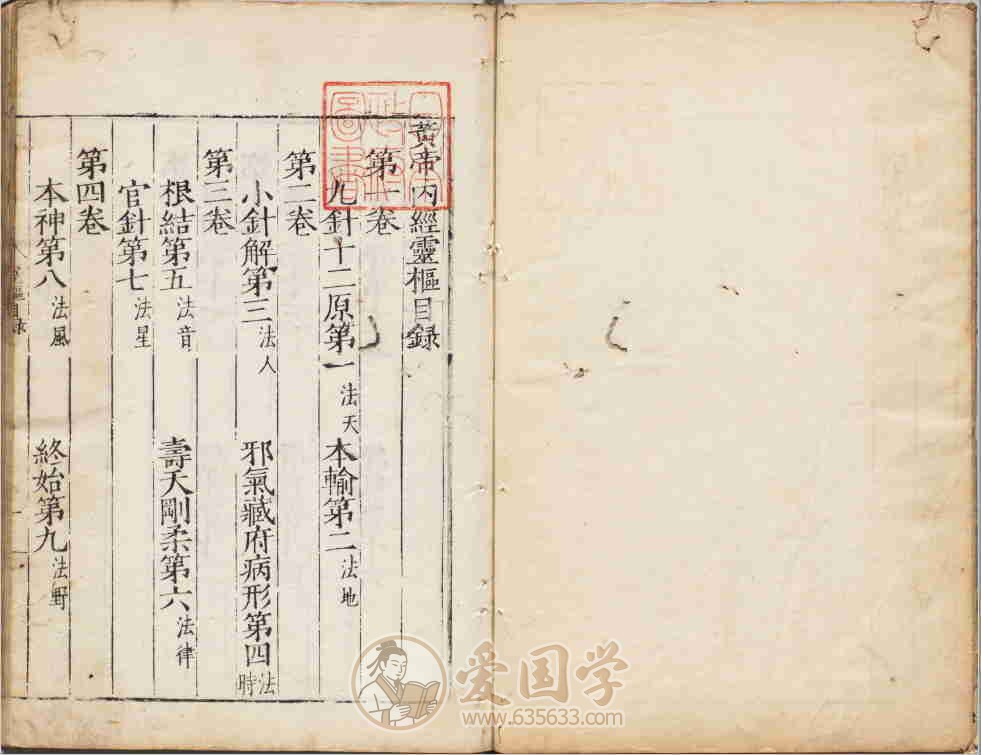 黃帝內經靈樞目錄
第一卷
九針十二原第一 法天 本輸第二 法地
第二卷
小針解第三 法人 邪氣藏府病形第四 法時
第三卷
根結第五 法音 壽夭剛柔第六 法律
官針第七 法星
第四卷
本神第八 法風 終始第九 法野
樞目錄
爱国学
www.635633.com